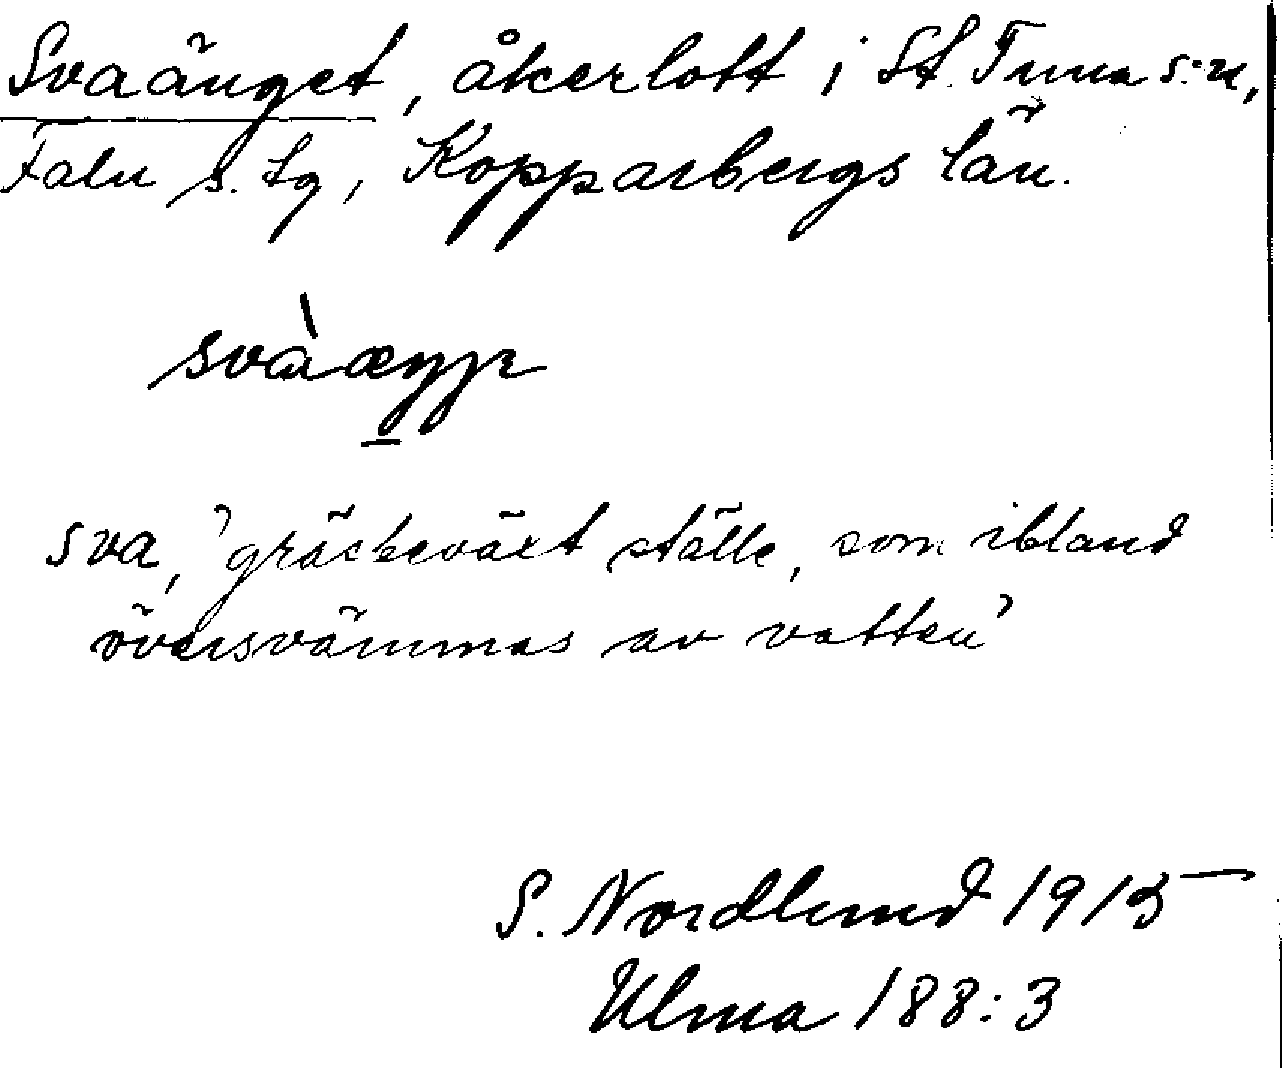 Svaänget, åkerlott i St. Tuna s:n,
Falu s. tg, Kopparbergs län.
sva, 'gräsbeväxt ställe, som ibland
översvämmas av vatten'
S. Nordlund 1915
Ulma 188:3